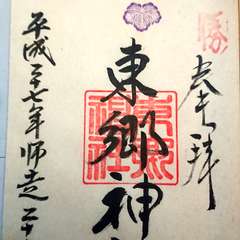 勝
奉拝
東郷神
東郷神社
平成二十七年師走二十